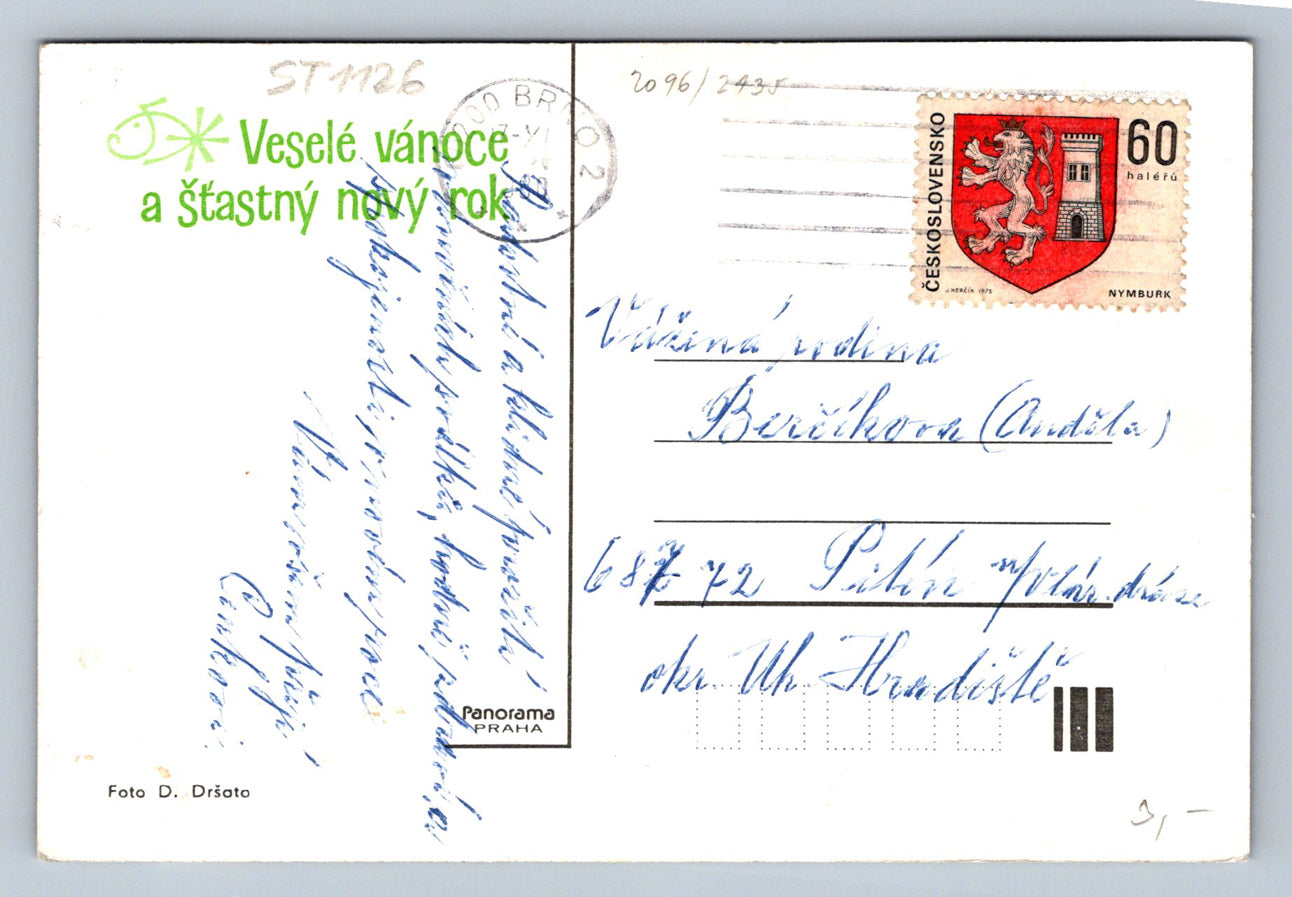 ST 1126
Veselé vánoce
a šťastný nový rok
Radostné a klidné prožití
vánočních svátků, hodně zdraví a
spokojenosti, v novém roce
Vám všem přejí
Cinkovi
Panorama
PRAHA
Foto D. Dršata
BRNO 2
2096/2435
ČESKOSLOVENSKO
60
haléřů
J. HERČÍK 1975
NYMBURK
Vážená rodina
Berčíkova (Anděla)
687 72 Pitín
okr. Uh. Hradiště
3,-